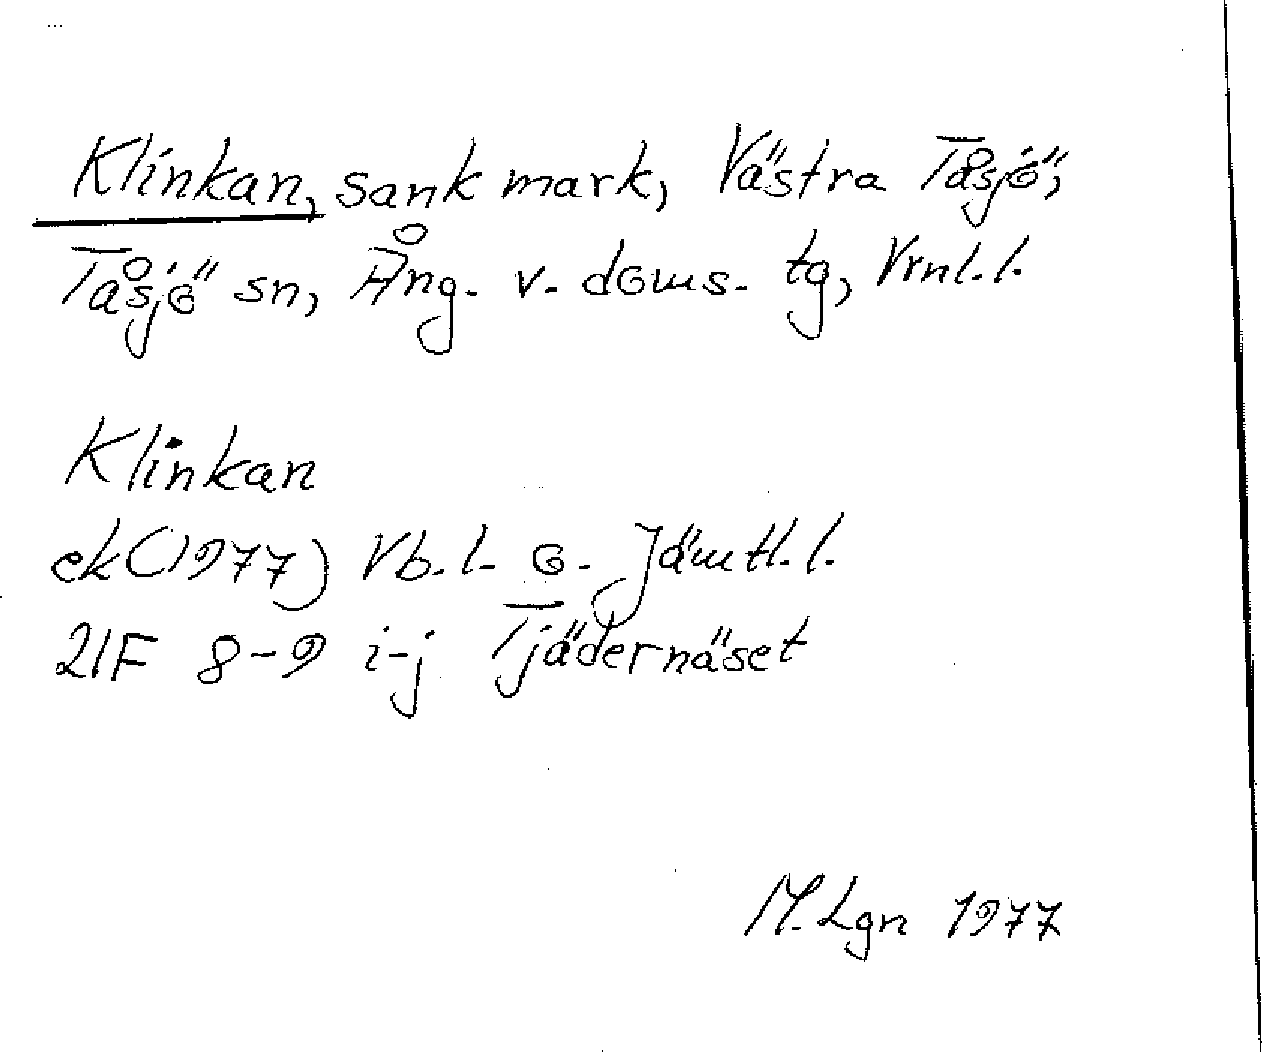 Klinkan, sank mark, Västra Tåsjö,
Tåsjö sn, Ång. v. doms. tg, Vrnl. l.
Klinkan
ek (1977) Vb. l. o. Jämtl. l.
21F 8-9 i-j Tjädernäset
M. Lgn 1977